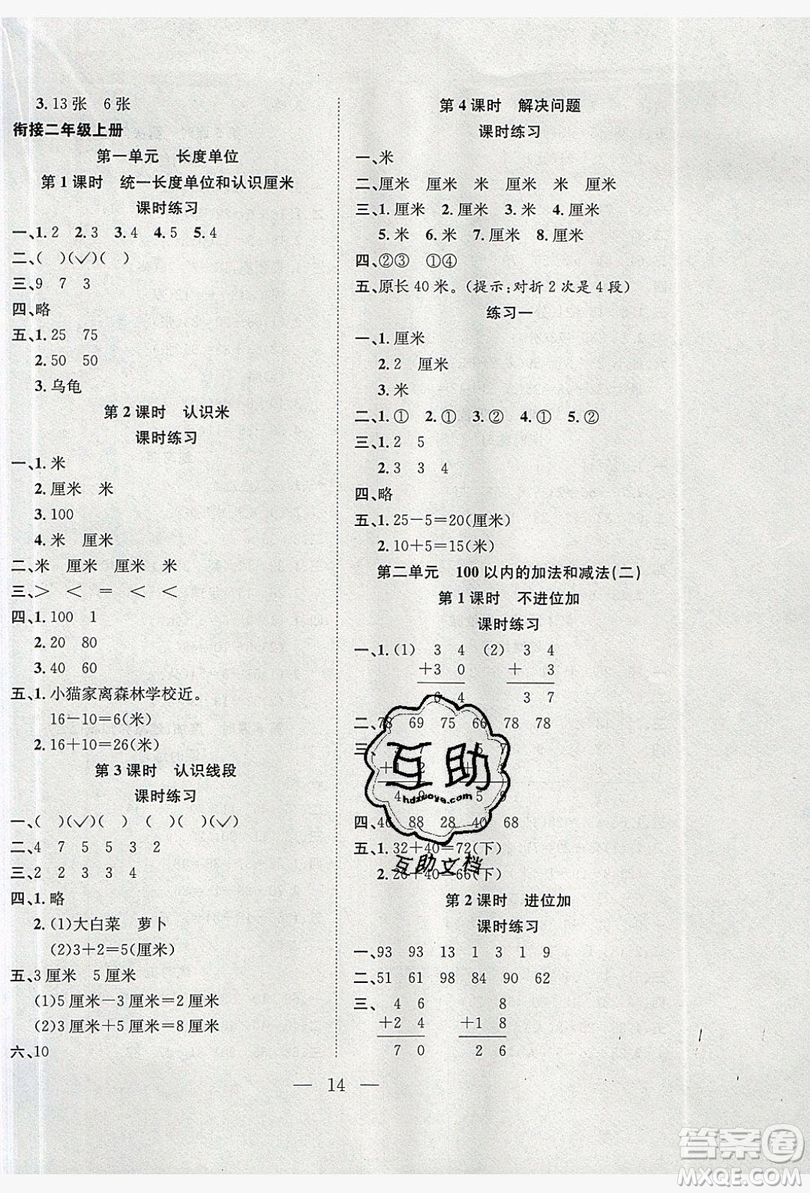 3.13张 6张
衔接二年级上册
第一单元 长度单位
第1课时 统一长度单位和认识厘米
课时练习
一、1.2 2.3 3.4 4.5 5.4
二、( )(✓)( )
三、9 7 3
四、略
五、1.25 75
2.50 50
3.乌龟
第2课时 认识米
课时练习
一、1.米
2.厘米 米
3.100
4.米 厘米
二、米 厘米 厘米 米
三、> < = < <
四、1.100 1
2.20 80
3.40 60
五、1.小猫家离森林学校近。
16-10=6(米)
2.16+10=26(米)
第3课时 认识线段
课时练习
一、( )(✓) ( ) ( )(✓)
二、4 7 5 5 3 2
三、1 2 2 3 4
四、1.略
2.(1)大白菜 萝卜
(2)3+2=5(厘米)
五、3厘米 5厘米
(1)5厘米-3厘米=2厘米
(2)3厘米+5厘米=8厘米
六、10
第4课时 解决问题
课时练习
一、米
二、厘米 厘米 米 米 厘米
三、1.厘米 2.厘米 3.米 4.厘米
5.米 6.厘米 7.厘米 8.厘米
四、②③ ①④
五、原长40米。(提示:对折2次是4段)
练习一
一、1.厘米
2.2 厘米
3.米
二、1.① 2.① 3.② 4.① 5.②
三、1.2 5
2.3 3 4
四、略
五、1.25-5=20(厘米)
2.10+5=15(米)
第二单元 100以内的加法和减法(二)
第1课时 不进位加
课时练习
一、1.(1) 3 4 (2) 3 4
+3 0 + 3
6 4 3 7
二、78 69 75 66 78 78
三、
+2
4 9 5 9
四、40 88 28 40 88
五、1.32+40=72(下)
2.26+40=66(下)
第2课时 进位加
课时练习
一、93 93 13 1 3 1 9
二、51 61 98 84 90 62
三、 4 6 8
+2 4 +1 8
7 0 2 6
14
互助
hdzwoye.com
互助文档
答案圈
MXQE.COM